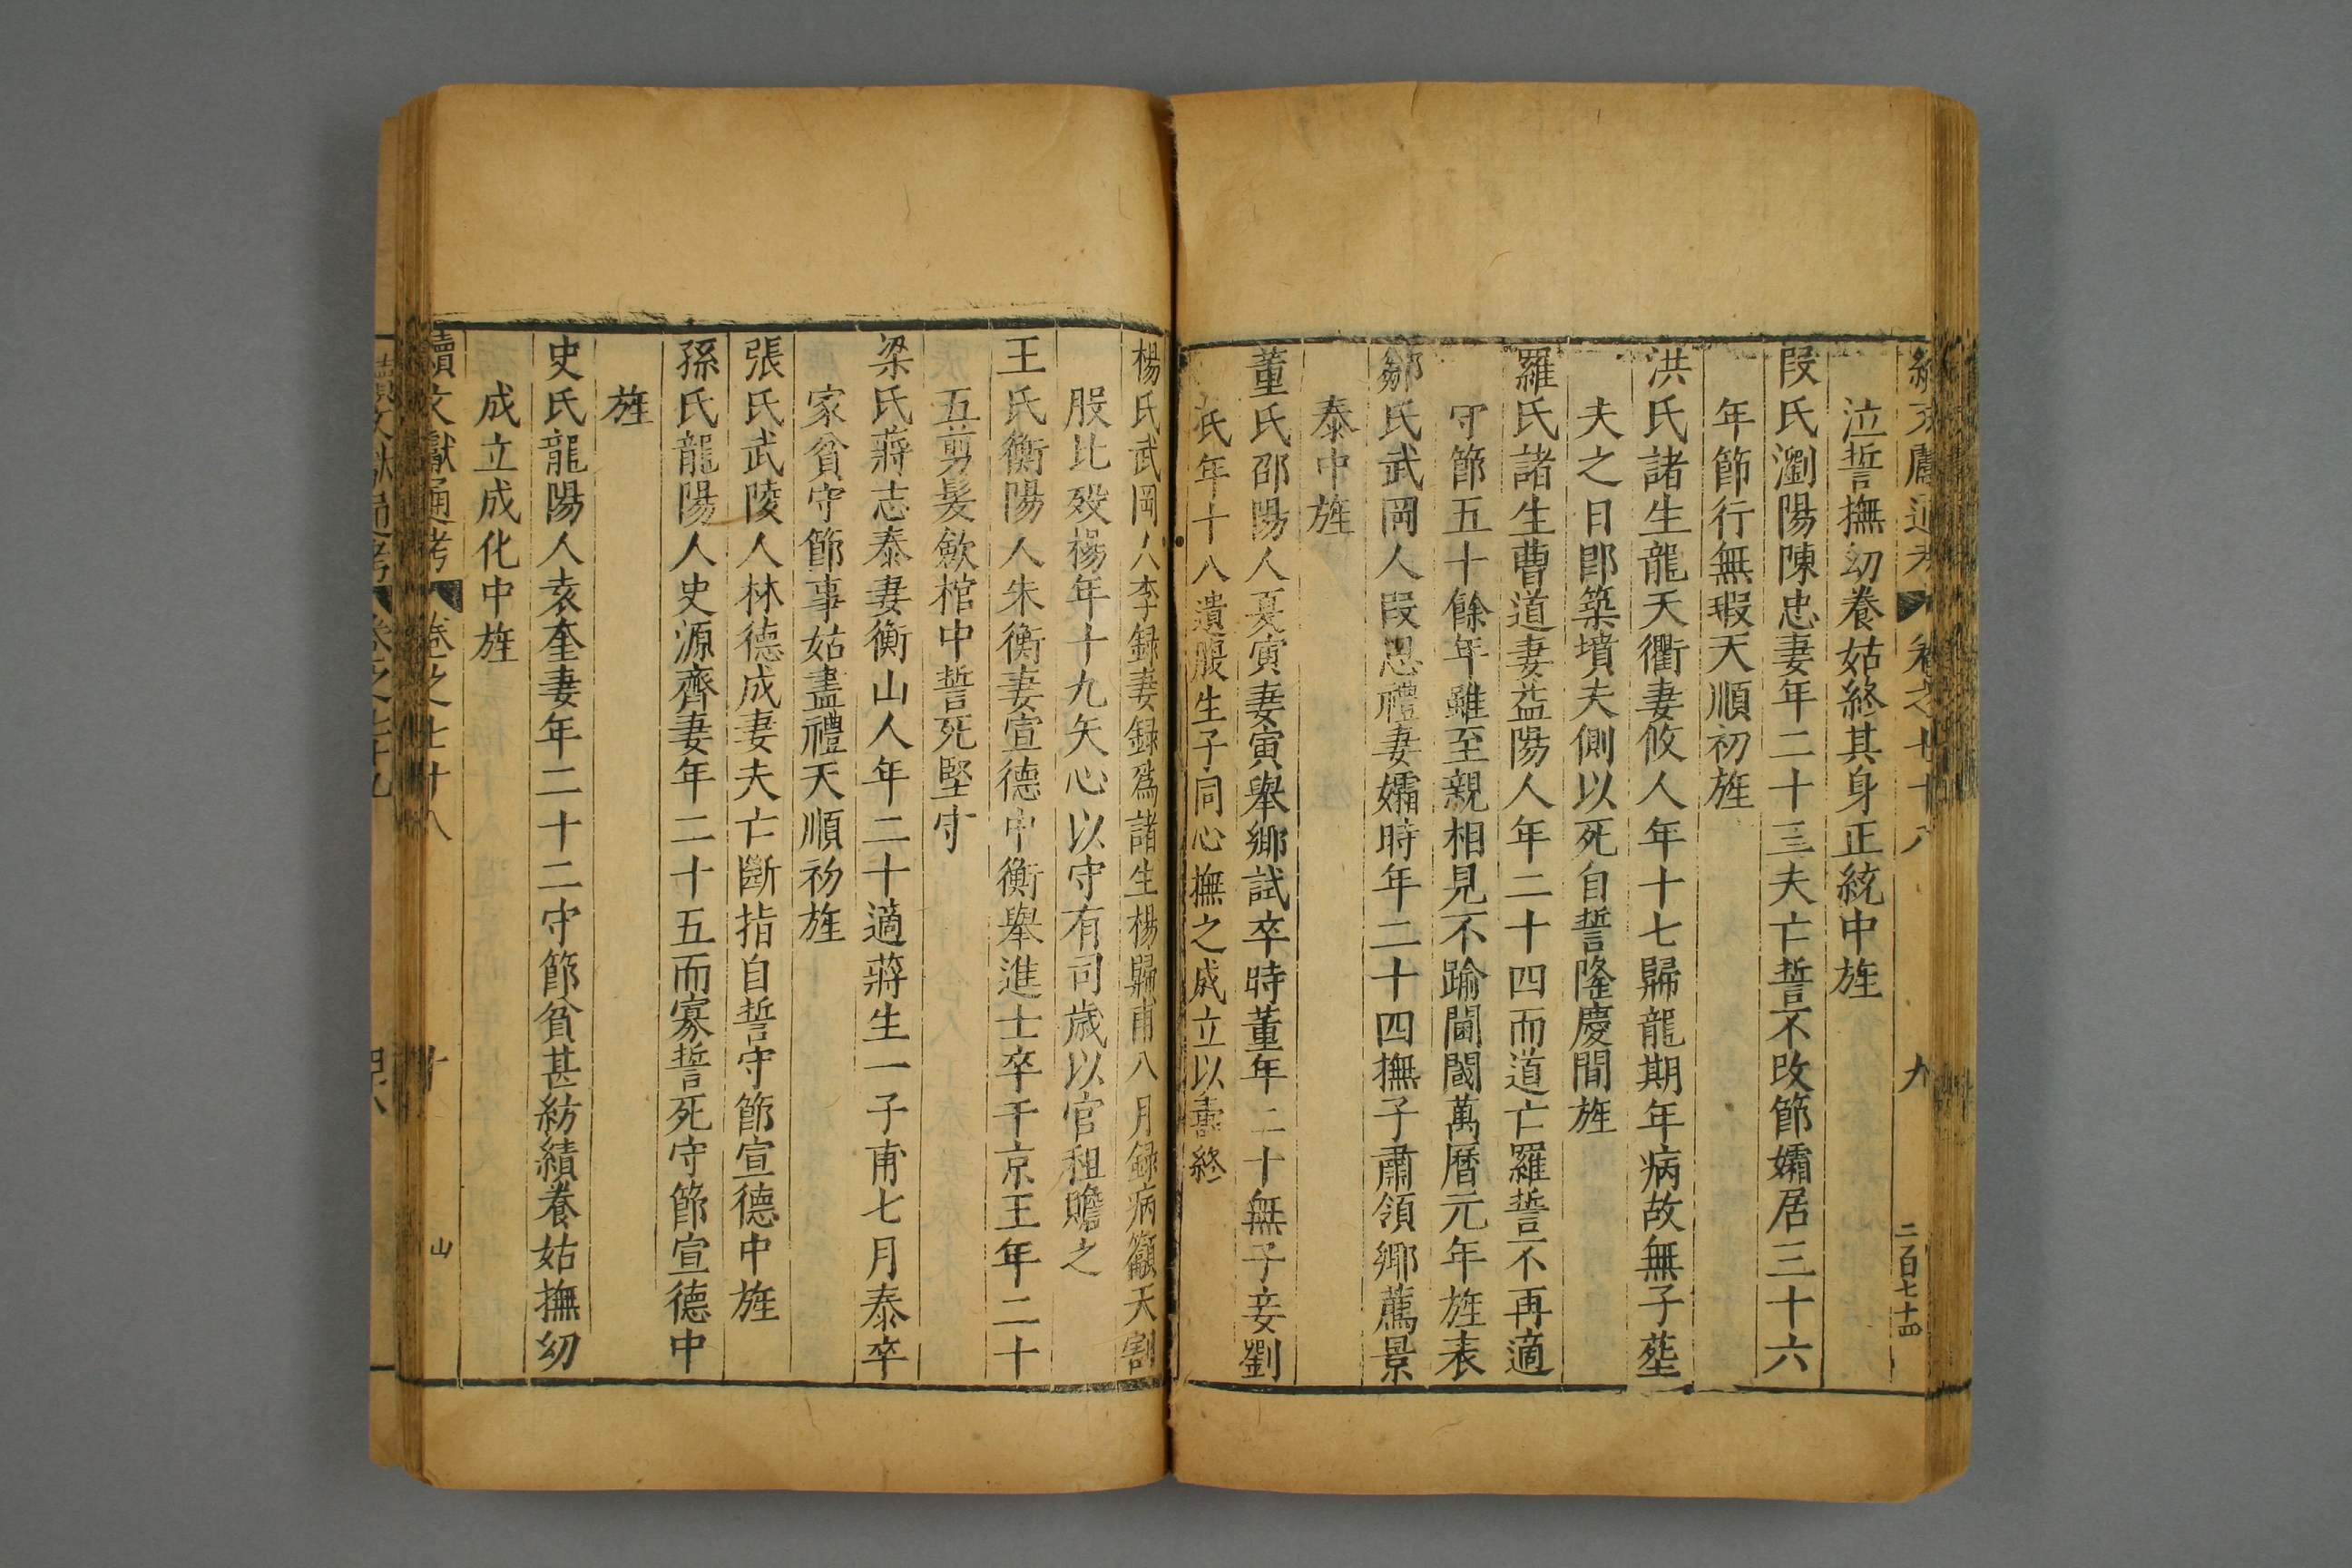 續文獻通考 卷之七十八 九 二百七十四
泣誓撫幼養姑終其身正統中旌
段氏瀏陽陳忠妻年二十三夫亡誓不改節孀居三十六
年節行無瑕天順初旌
洪氏諸生龍天衢妻攸人年十七歸龍期年病故無子塟
夫之日卽築墳夫側以死自誓隆慶間旌
羅氏諸生曹道妻益陽人年二十四而道亡羅誓不再適
守節五十餘年雖至親相見不踰閫閾萬曆元年旌表
鄒氏武岡人段思禮妻孀時年二十四撫子肅領鄉薦景
泰中旌
董氏邵陽人夏寅妻寅舉鄉試卒時董年二十無子妾劉
氏年十八遺腹生子同心撫之成立以壽終
楊氏武岡人李録妻録爲諸生楊歸甫八月録病籲天割
股比殁楊年十九矢心以守有司歲以官租贍之
王氏衡陽人朱衡妻宣德中衡舉進士卒于京王年二十
五剪髮歛棺中誓死堅守
梁氏蔣志泰妻衡山人年二十適蔣生一子甫七月泰卒
家貧守節事姑盡禮天順初旌
張氏武陵人林德成妻夫亡斷指自誓守節宣德中旌
孫氏龍陽人史源齊妻年二十五而寡誓死守節宣德中
旌
史氏龍陽人袁奎妻年二十二守節貧甚紡績養姑撫幼
成立成化中旌
續文獻通考 卷之七十八 十 山
續文獻通考 卷之七十九